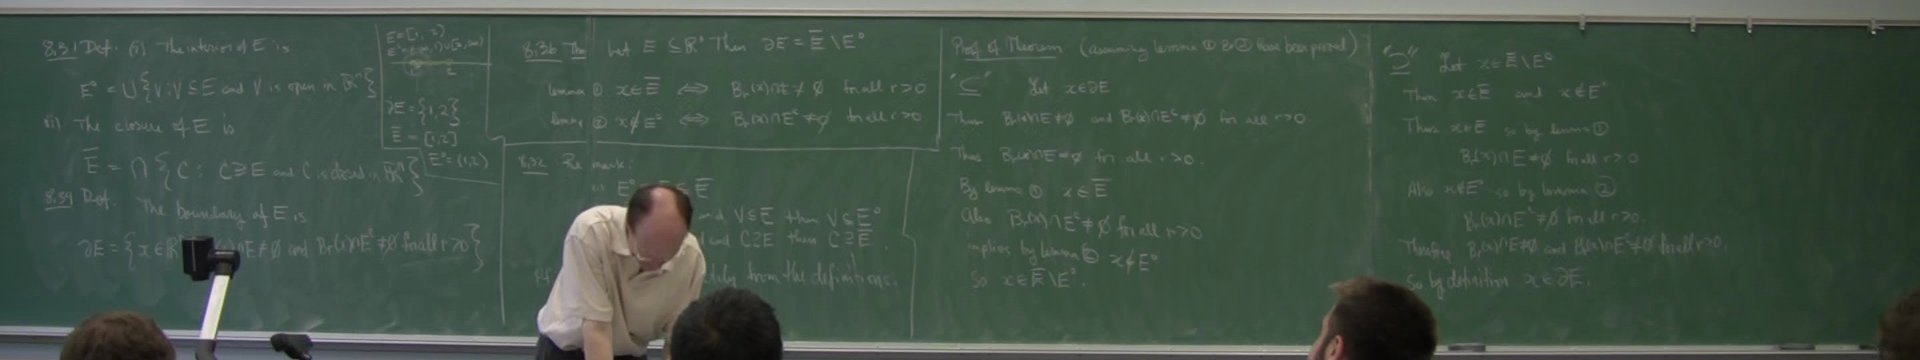 8.31 Def. (i) The interior of E is
E° = ∪{V : V ⊆ E and V is open in ℝⁿ}
ii) The closure of E is
E̅ = ∩{C : C ⊇ E and C is closed in ℝⁿ}
8.34 Def. The boundary of E is
∂E = {x ∈ ℝ ∩E ≠ ∅ and Br(x)∩Eᶜ ≠ ∅ for all r>0}
E = [1, 2)
∂E = {1,2}
E̅ = [1,2]
E° = (1,2)
8.36 Thm Let E ⊆ ℝⁿ Then ∂E = E̅ \ E°
lemma ① x∈E̅ ⇔ Br(x)∩E ≠ ∅ for all r>0
lemma ② x∉E° ⇔ Br(x)∩Eᶜ ≠ ∅ for all r>0
8.32 Remark:
E° ⊆ E ⊆ E̅
and V⊆E then V⊆E°
and C⊇E then C⊇E̅
from the definitions.
Proof of Theorem (assuming lemma ① & ② have been proved)
"⊆" Let x∈∂E
Then Br(x)∩E≠∅ and Br(x)∩Eᶜ≠∅ for all r>0.
Thus Br(x)∩E≠∅ for all r>0.
By lemma ① x∈E̅
Also Br(x)∩Eᶜ≠∅ for all r>0
implies by lemma ② x∉E°
So x∈E̅\E°.
"⊇" Let x∈E̅\E°
Then x∈E̅ and x∉E°
Thus x∈E̅ so by lemma ①
Br(x)∩E≠∅ for all r>0
Also x∉E° so by lemma ②
Br(x)∩Eᶜ≠∅ for all r>0.
Therefore Br(x)∩E≠∅ and Br(x)∩Eᶜ≠∅ for all r>0.
So by definition x∈∂E.